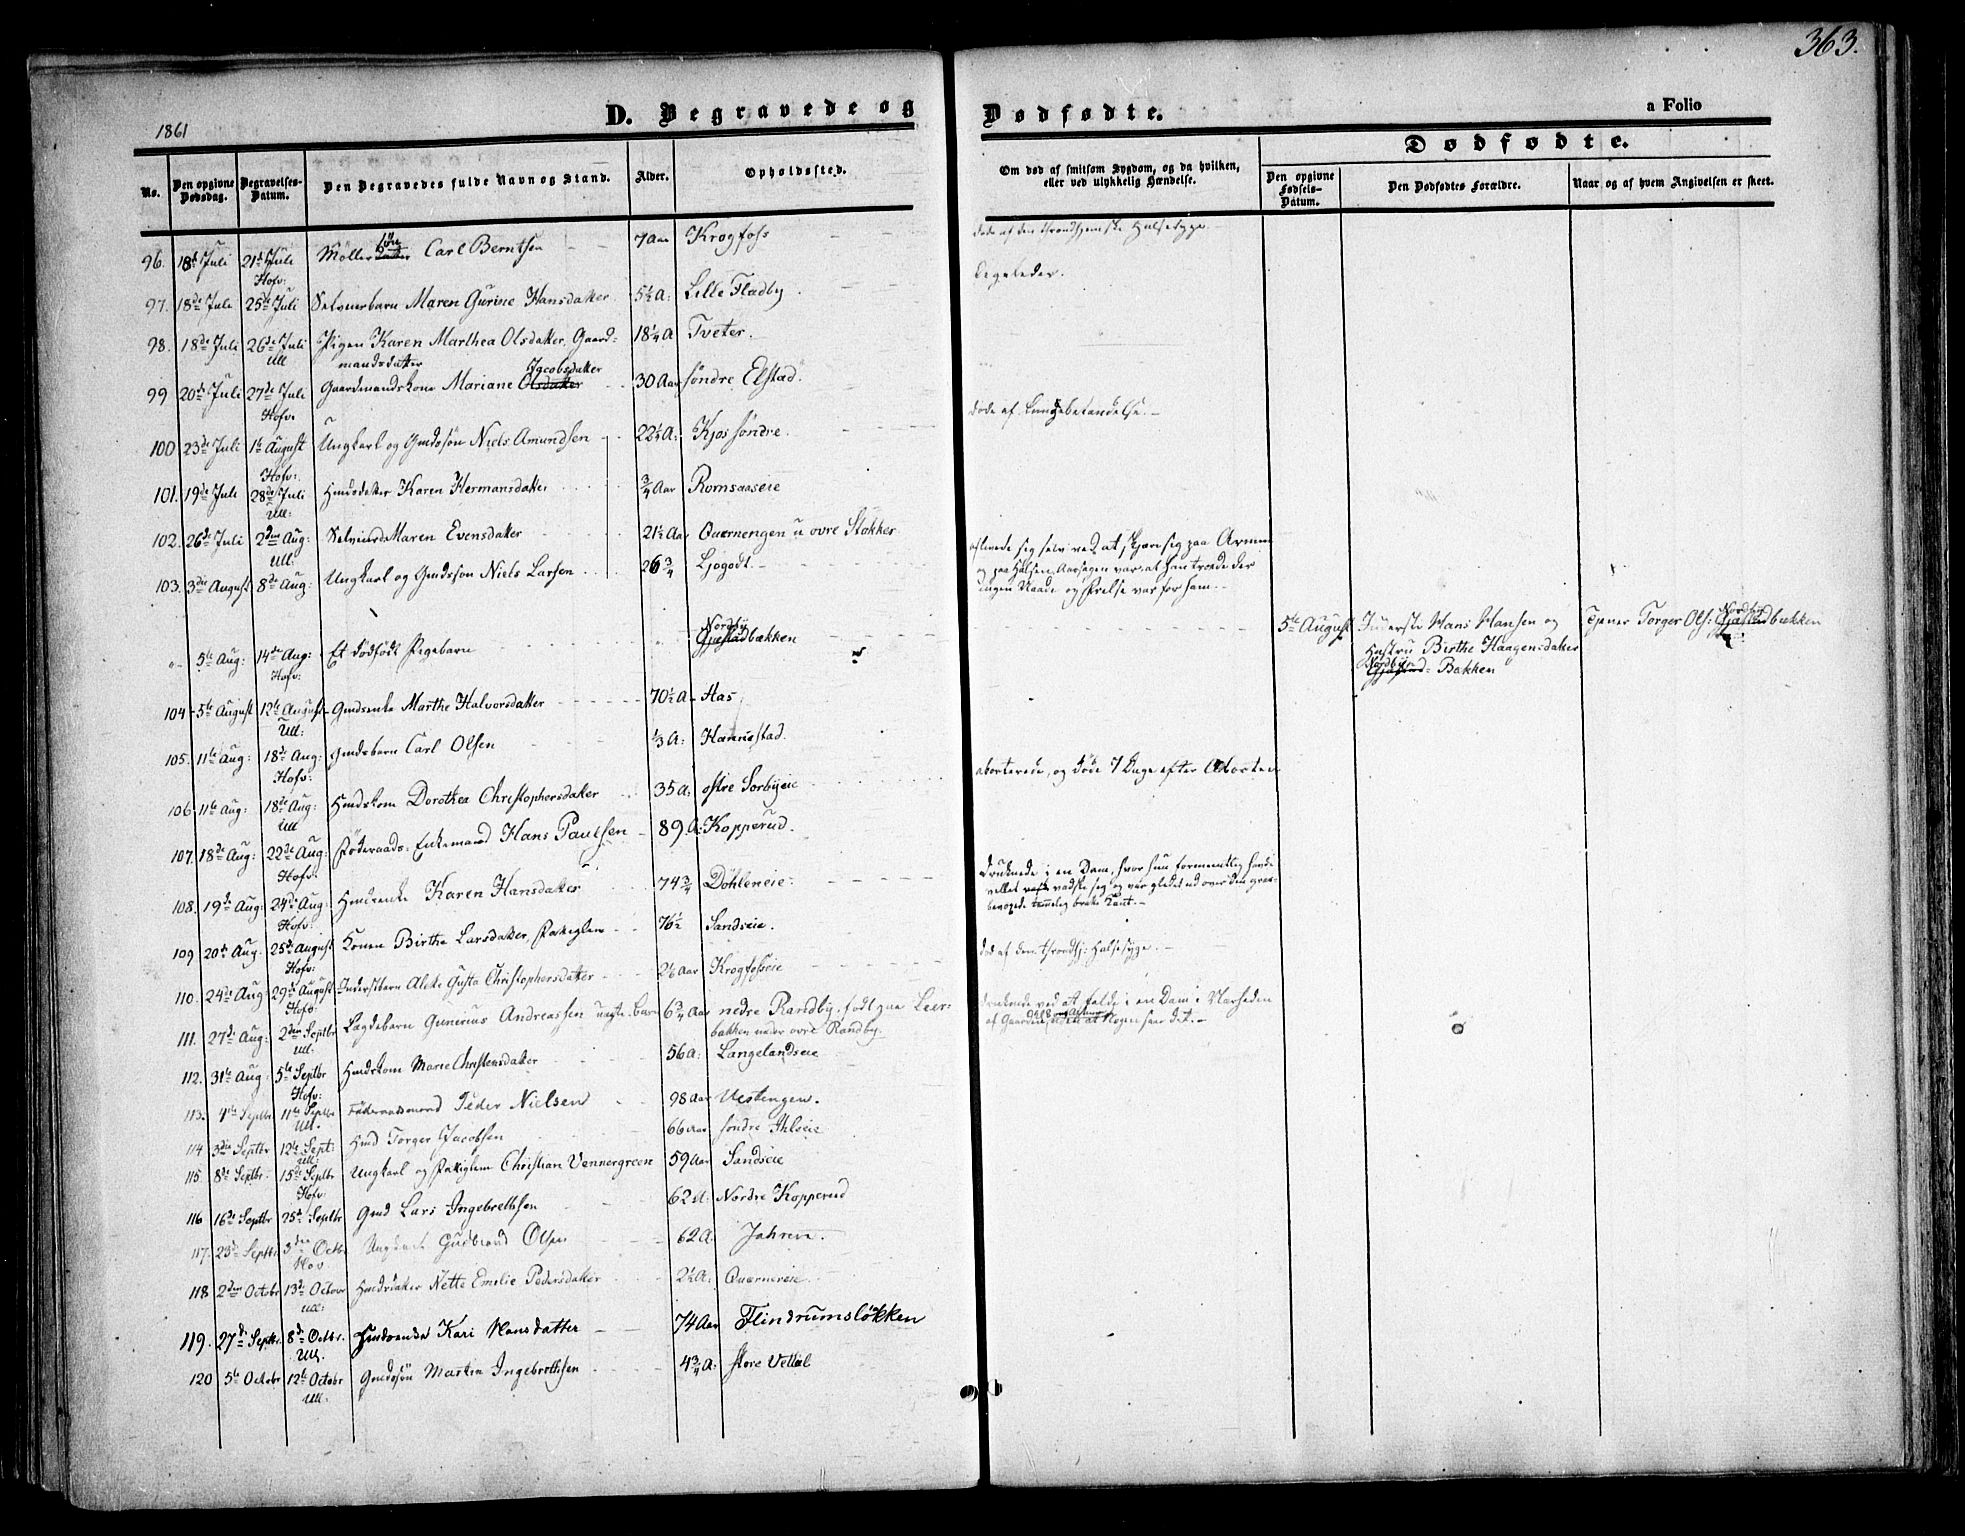 363.
1861
D. Begravede og Dødfødte.
a Folio
No.
Den opgivne Dødsdag.
Begravelses-Datum.
Den Begravedes fulde Navn og Stand.
Alder.
Opholdssted.
Om død af smitsom Sygdom, og da hvilken, eller ved ulykkelig Hændelse.
Dødfødte.
Den opgivne Fødsels-Datum.
Den Dødfødtes Forældre.
Naar og af hvem Angivelsen er skeet.
96. 18de Juli 21de Juli Møller søn Carl Berntsen 7 Aar Krogfoss døde af den throndhjemske Halsesyge.
Hofv:
97. 18de Juli 25de Juli Selveierbarn Maren Gurine Hansdatter 5½ A: Lille Fladby ligeledes.
98. 18de Juli 26de Juli Pigen Karen Marthea Olsdatter, Gaard- 18¼ A Tveter.
Ull mandsdatter
99 20de Juli 27de Juli Gaardmandskone Mariane Olsdatter Jacobsdatter 30 Aar søndre Elstad.
Hofv.
100 23de Juli 1ste August Ungkarl og Gmdssøn Niels Amundsen 22½ A: Kjos søndre. døde af Lungebetændelse.
Hofv:
101. 19de Juli 28de Juli Hmdsdatter Karen Hermansdatter ¾ Aar Romsaaseie
Ull:
102. 26de Juli 2den Aug: Maren Evensdatter 21½ Aar Qvernengen u øvre Stokker
Ull:
103. 3die August 8de Aug: Ungkarl og Gmdssøn Niels Larsen 26¾ Ljogodt. aflivede sig selv ved at skjære sig paa Armen
og paa Halsen, Aarsagen var, at han troede der
ingen Naade og Frelse var for ham.
" 5te Aug: 14de Aug: Et dødfødt Pigebarn Nordby Gjæstadbækken 5te August Inderste Hans Hansen og Tjener Torger Ols: Nordby Gjæstadbækken
Hofv: Hustru Birthe Haagensdatter
Nordby Gjæstad: Bakken
104 5te August 12te August Gmdsenke Marthe Halvorsdatter 70½ A Has
Ull:
105. 11te Aug: 18de Aug: Gmdsbarn Carl Olsen ⅓ A: Hannestad.
Hofv:
106 11te Aug: 18de Aug: Hmdskone Dorothea Christophersdatter 35 A: østre Sorbyeie aborterede, og døde 7 Dage efter Aborten
Ull
107. 18de Aug: 22de Aug: Føderaads-Enkemand Hans Paulsen 89 A: Kopperud.
Hofv:
108. 19de Aug: 24de Aug: Hmdsenke Karen Hansdatter 74¾ Døhleneie druknede i en Dam, hvor hun formentlig havde
villet vadske sig og var gledet ud over den græs-
Hofv:
109 20de Aug. 25de August Konen Birthe Larsdatter, Fattiglem 76½ Sandseie.
Hofv:
110. 24de Aug: 29de August Inderstbarn Alette Gusta Christophersdatter 2⅙ Aar Krogfosseie død af den throndhj: Halsesyge.
Hofv:
111. 27de Aug: 2den Septbr Lægdebarn Gunerius Andreassen uægte Barn 6¾ Aar nedre Randby, født paa Leer- druknede ved at falde i en Dam i Nærheden
Ull: bakken neder øvre Randby af Gaarden, uden at Nogen saae det.
112. 31te Aug: 5te Septbr Hmdskone Marie Christensdatter 56 A: Langelandseie
Hofv:
113. 4de Septbr 11te Septbr Føderaadsmand Peder Nielsen 98 Aar Vestengen.
Ull.
114 3die Septbr 12te Sept: Hmd Torger Jacobsen 66 Aar søndre Ihleie
Ull:
115 8de Septbr. 15de Septbr Ungkarl og Fattiglem Christian Vennergreen 59 Aar Sandseie
Hofv:
116 16de Septbr 25de Septbr Gmd Lars Ingebrethsen 62 A: Nordre Kopperud
117. 23de Septbr 3die Octbr Ungkarl Gudbrand Olsen 62 A. Jahren.
Hov
118 2den Octobr 13de Octobr Hmdsdatter Nette Emilie Pedersdatter 2½ A: Qverneie
Ull:
119. 27de Septbr. 8de Octbr. Hmdsenke Kari Hansdatter 74 Aar Flindrumsløkken
Ull.
120 5te Octobr 12te Octobr Gmdssøn Martin Ingebrethsen 4¾ A: store Vettal
Ull.